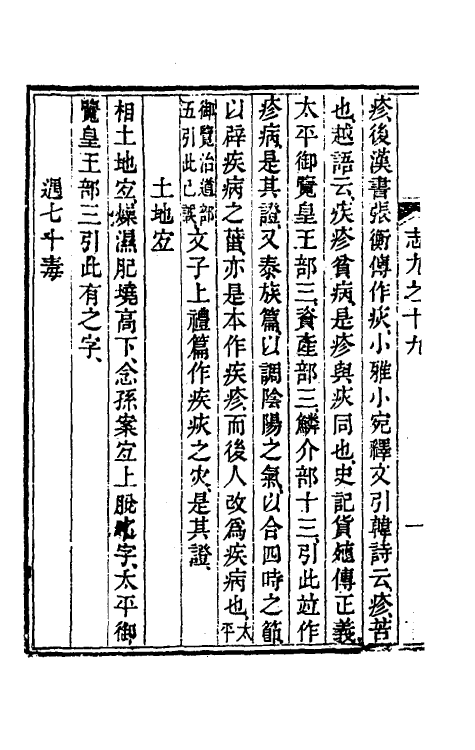 志九之十九
一
疹後漢書張衡傳作疢小雅小宛釋文引韓詩云疹苦
也越語云疾疹貧病是疹與疢同也史記貨殖傳正義
太平御覽皇王部三資產部三鱗介部十三引此竝作
疹病是其證又泰族篇以調陰陽之氣以合四時之節
以辟疾病之菑亦是本作疾疹而後人改爲疾病也太平
御覽治道部五引此已誤文子上禮篇作疾疢之災是其證
土地宐
相土地宐燥濕肥墝高下念孫案宐上脫之字太平御
覽皇王部三引此有之字
遇七十毒